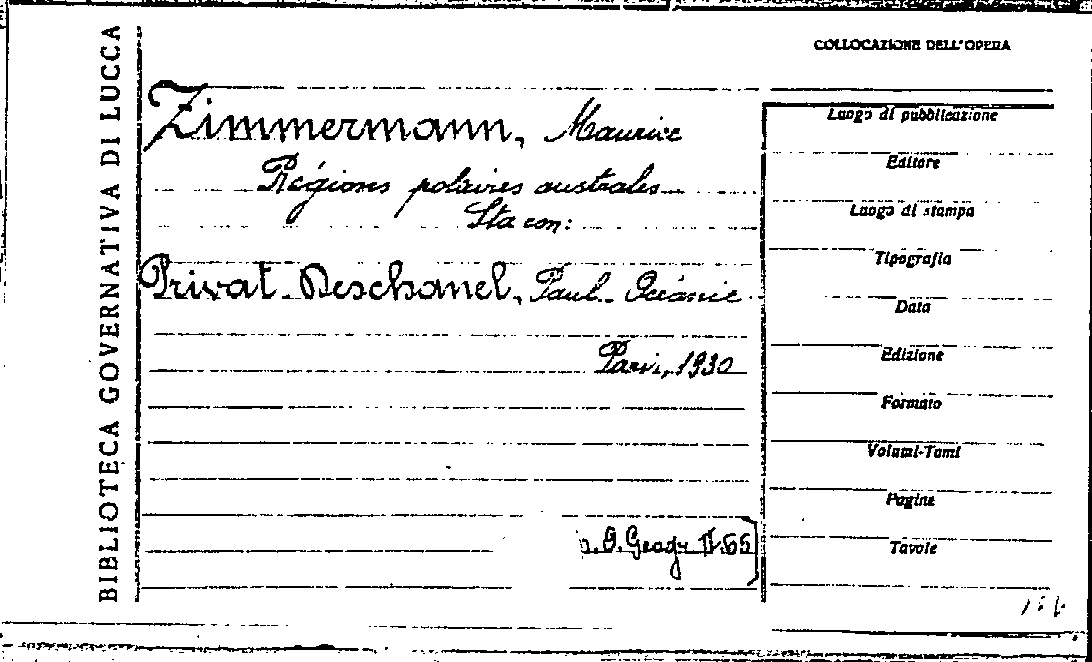 BIBLIOTECA GOVERNATIVA DI LUCCA
COLLOCAZIONE DELL'OPERA
Zimmermann, Maurice
Régions polaires australes
Sta con:
Privat-Deschanel, Paul - Océanie
Paris, 1930
Geogr. II. 65
Luogo di pubblicazione
Editore
Luogo di stampa
Tipografia
Data
Edizione
Formato
Volumi-Tomi
Pagine
Tavole